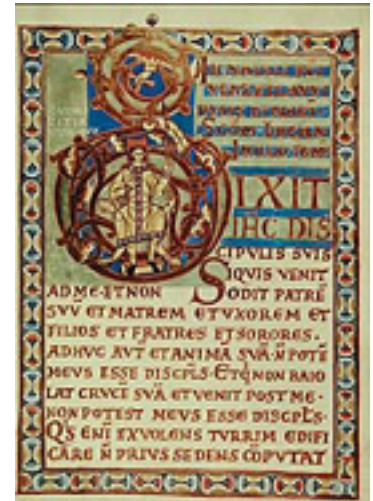 DIXIT
IHC DIS
CIPVLIS SVIS
SIQVIS VENIT
AD ME·ET NON ODIT PATRĒ
SVV̄ ET MATREM ET VXOREM ET
FILIOS ET FRATRES ET SORORES·
ADHVC AVT ET ANIMĀ SVĀ·N̄ POTĒ
MEVS ESSE DISCPLS·ET Q̄ NON BAIO
LAT CRVCĒ SVĀ ET VENIT POST ME·
NON POTEST MEVS ESSE DISCPLS·
QIS ENĪ EX VOLENS TVRRIM EDIFI
CARE N̄ PRIVS SEDENS CŌPVTAT